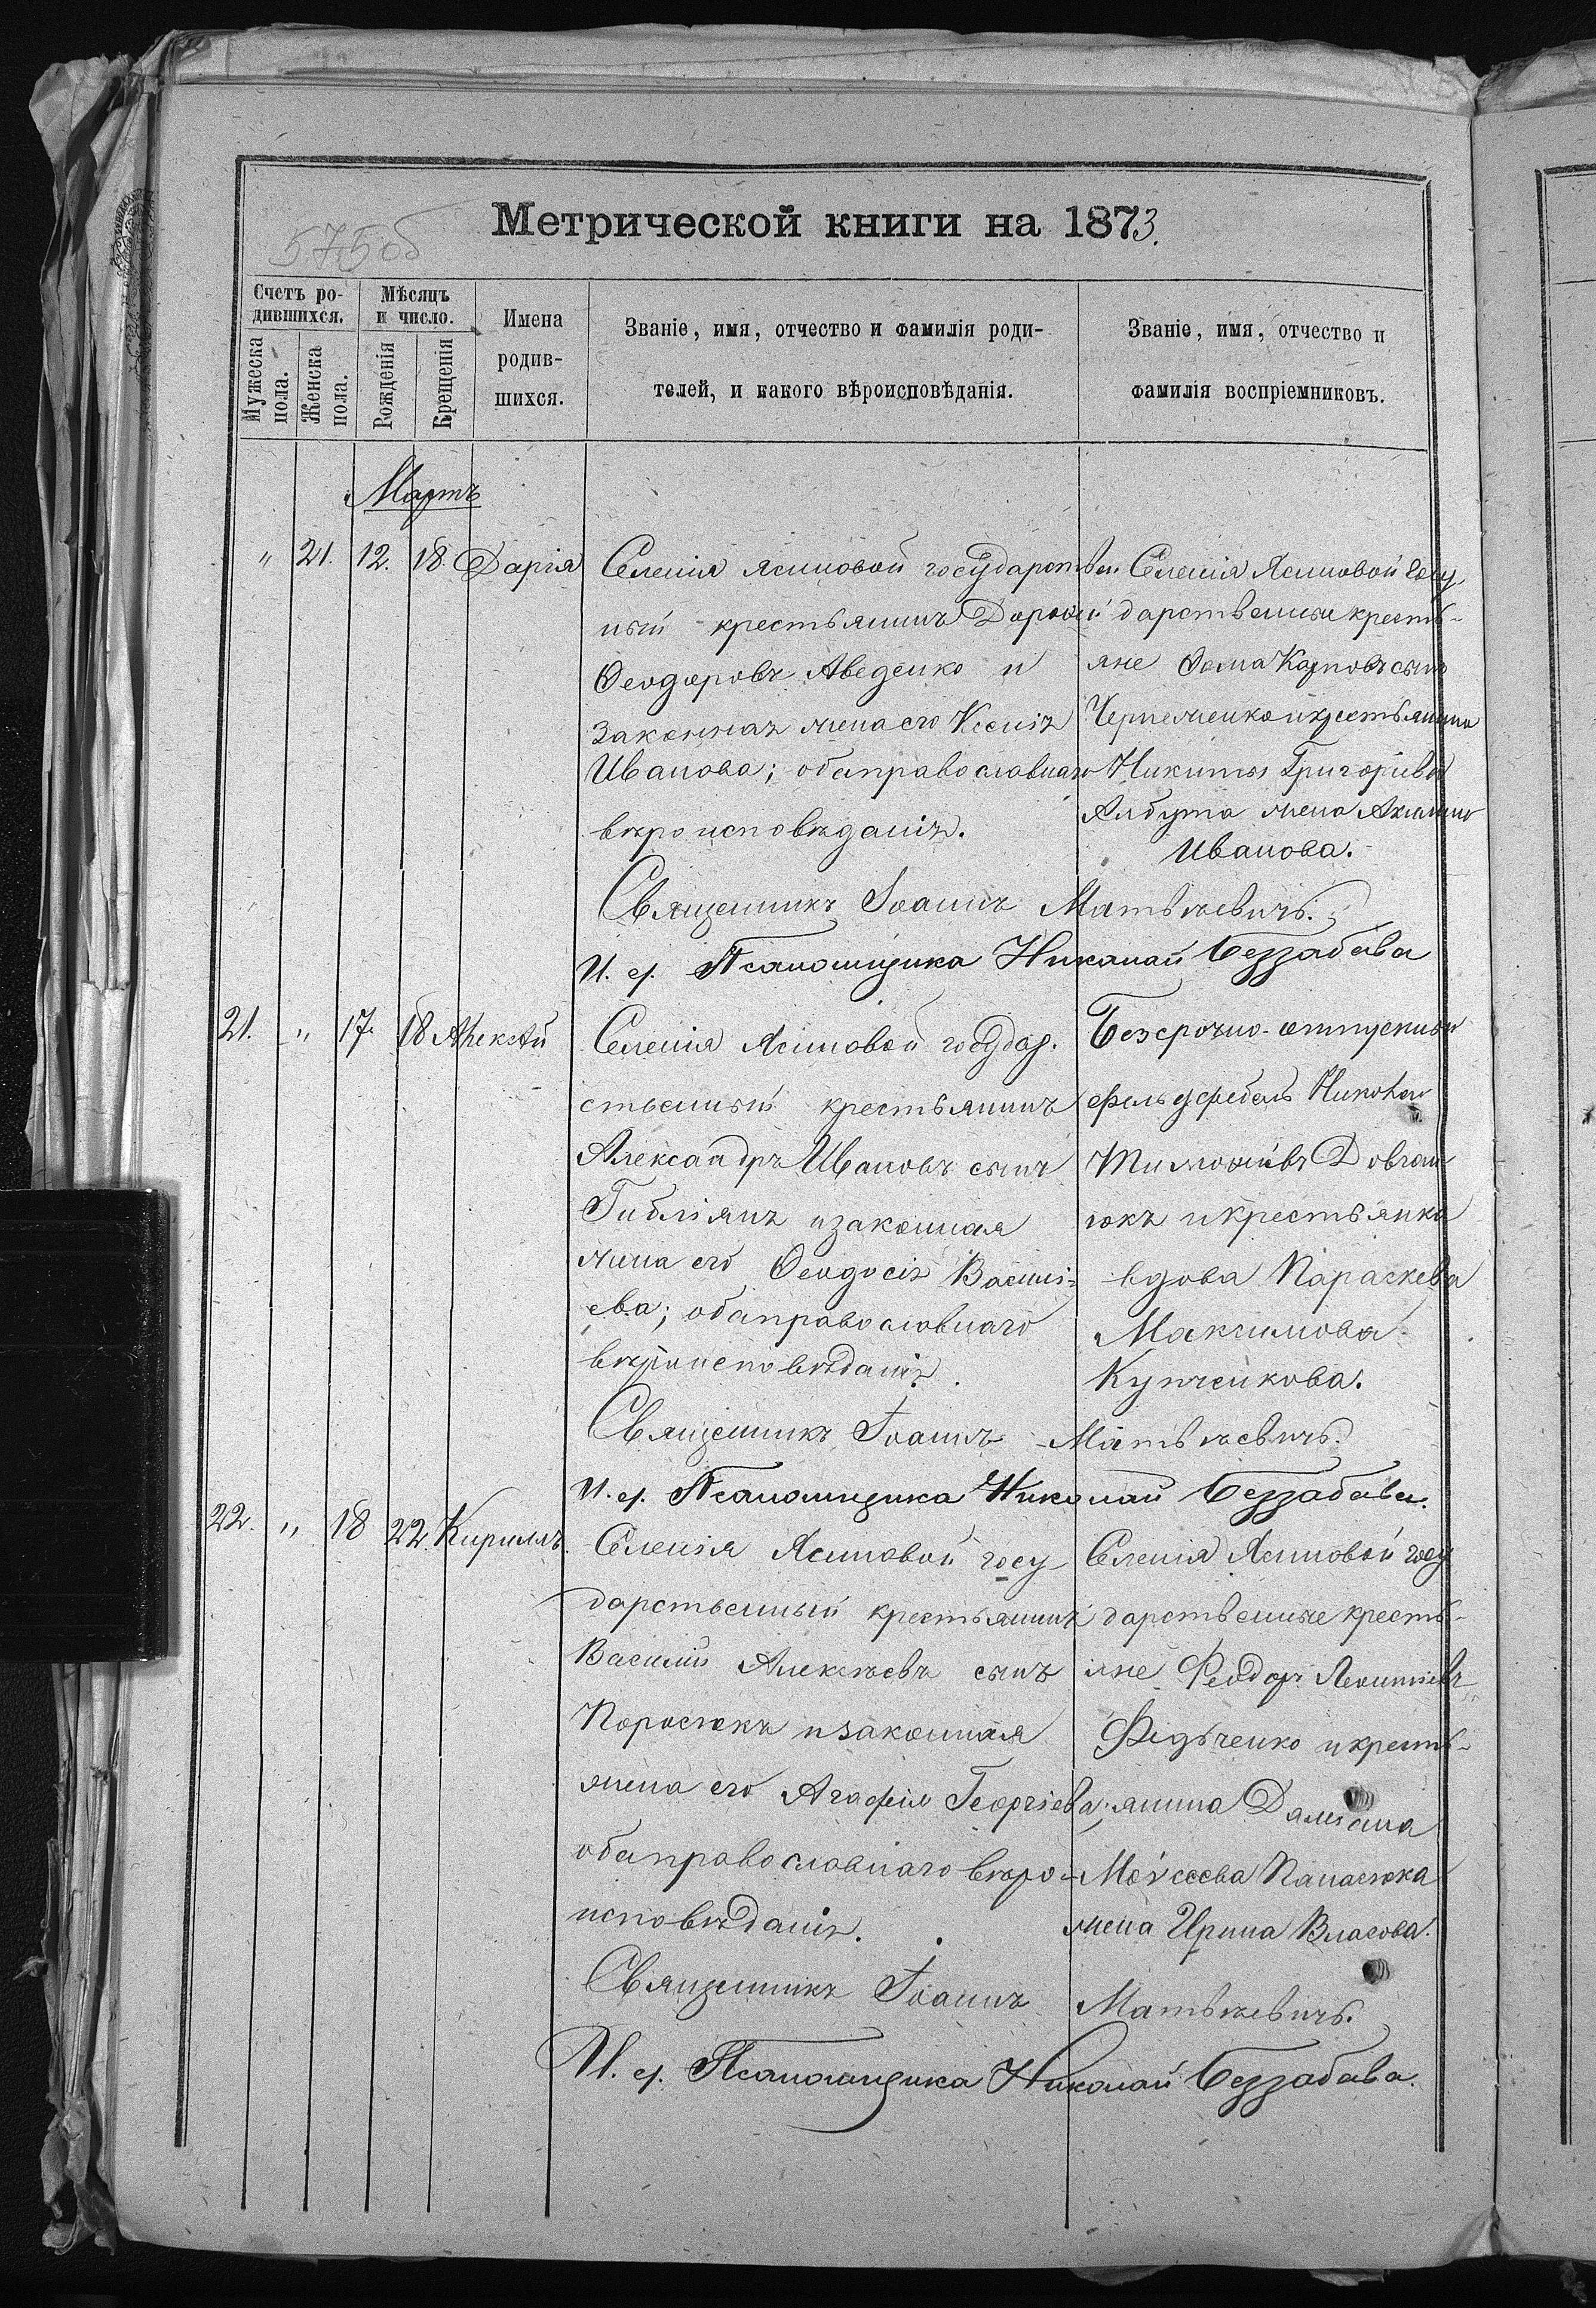 Метрической книги на 1873.
575об
Счетъ ро-
дившихся.
Мужеска
пола.
Женска
пола.
Мѣсяцъ
и число.
Рожденія
Крещенія
Имена
родив-
шихся.
Званіе, имя, отчество и фамилія роди-
телей, и какого вѣроисповѣданія.
Званіе, имя, отчество и
фамилія воспріемниковъ.
Мартъ
" 21. 12. 18. Дарія
Селенія Ясиновой государствен.
ный крестьянинъ Дорофей
Ѳеодоровъ Авдеенко и
законная жена его Ксенія
Иванова; оба православнаго
вѣроисповѣданія.
Селенія Ясиновой госу
дарственные кресть-
яне Ѳома Карповъ сынъ
и крестьянина
Никиты Григорьева
жена
Иванова.
Священникъ Іоаннъ Матвѣевичъ.
И. д. Псаломщика Николай Беззабава
21. " 17. 18 Алексѣй
Селенія Ясиновой государ.
ственный крестьянинъ
Александръ Ивановъ сынъ
и законная
жена его Ѳеодосія Василі=
ева; оба православнаго
вѣроисповѣданія.
Безсрочно-отпускной
фельдфебель Николай
Тимофѣевъ Довган
юкъ и крестьянка
вдова Параскева
Максимова
Купченкова.
Священникъ Іоаннъ Матвѣевичъ.
И. д. Псаломщика Николай Беззабава.
22. " 18 22. Кириллъ.
Селенія Ясиновой госу
дарственный крестьянинъ
Василій Алексѣевъ сынъ
Поросюкъ и законная
жена его Агафія Георгіева;
оба православнаго вѣро-
исповѣданія.
Селенія Ясиновой госу
дарственные кресть-
яне Феодоръ Леонтіевъ
и кресть-
янина Даміана
Моѵсеева Панасюка
жена Ирина Власова.
Священникъ Іоаннъ Матвѣевичъ.
И. д. Псаломщика Николай Беззабава.